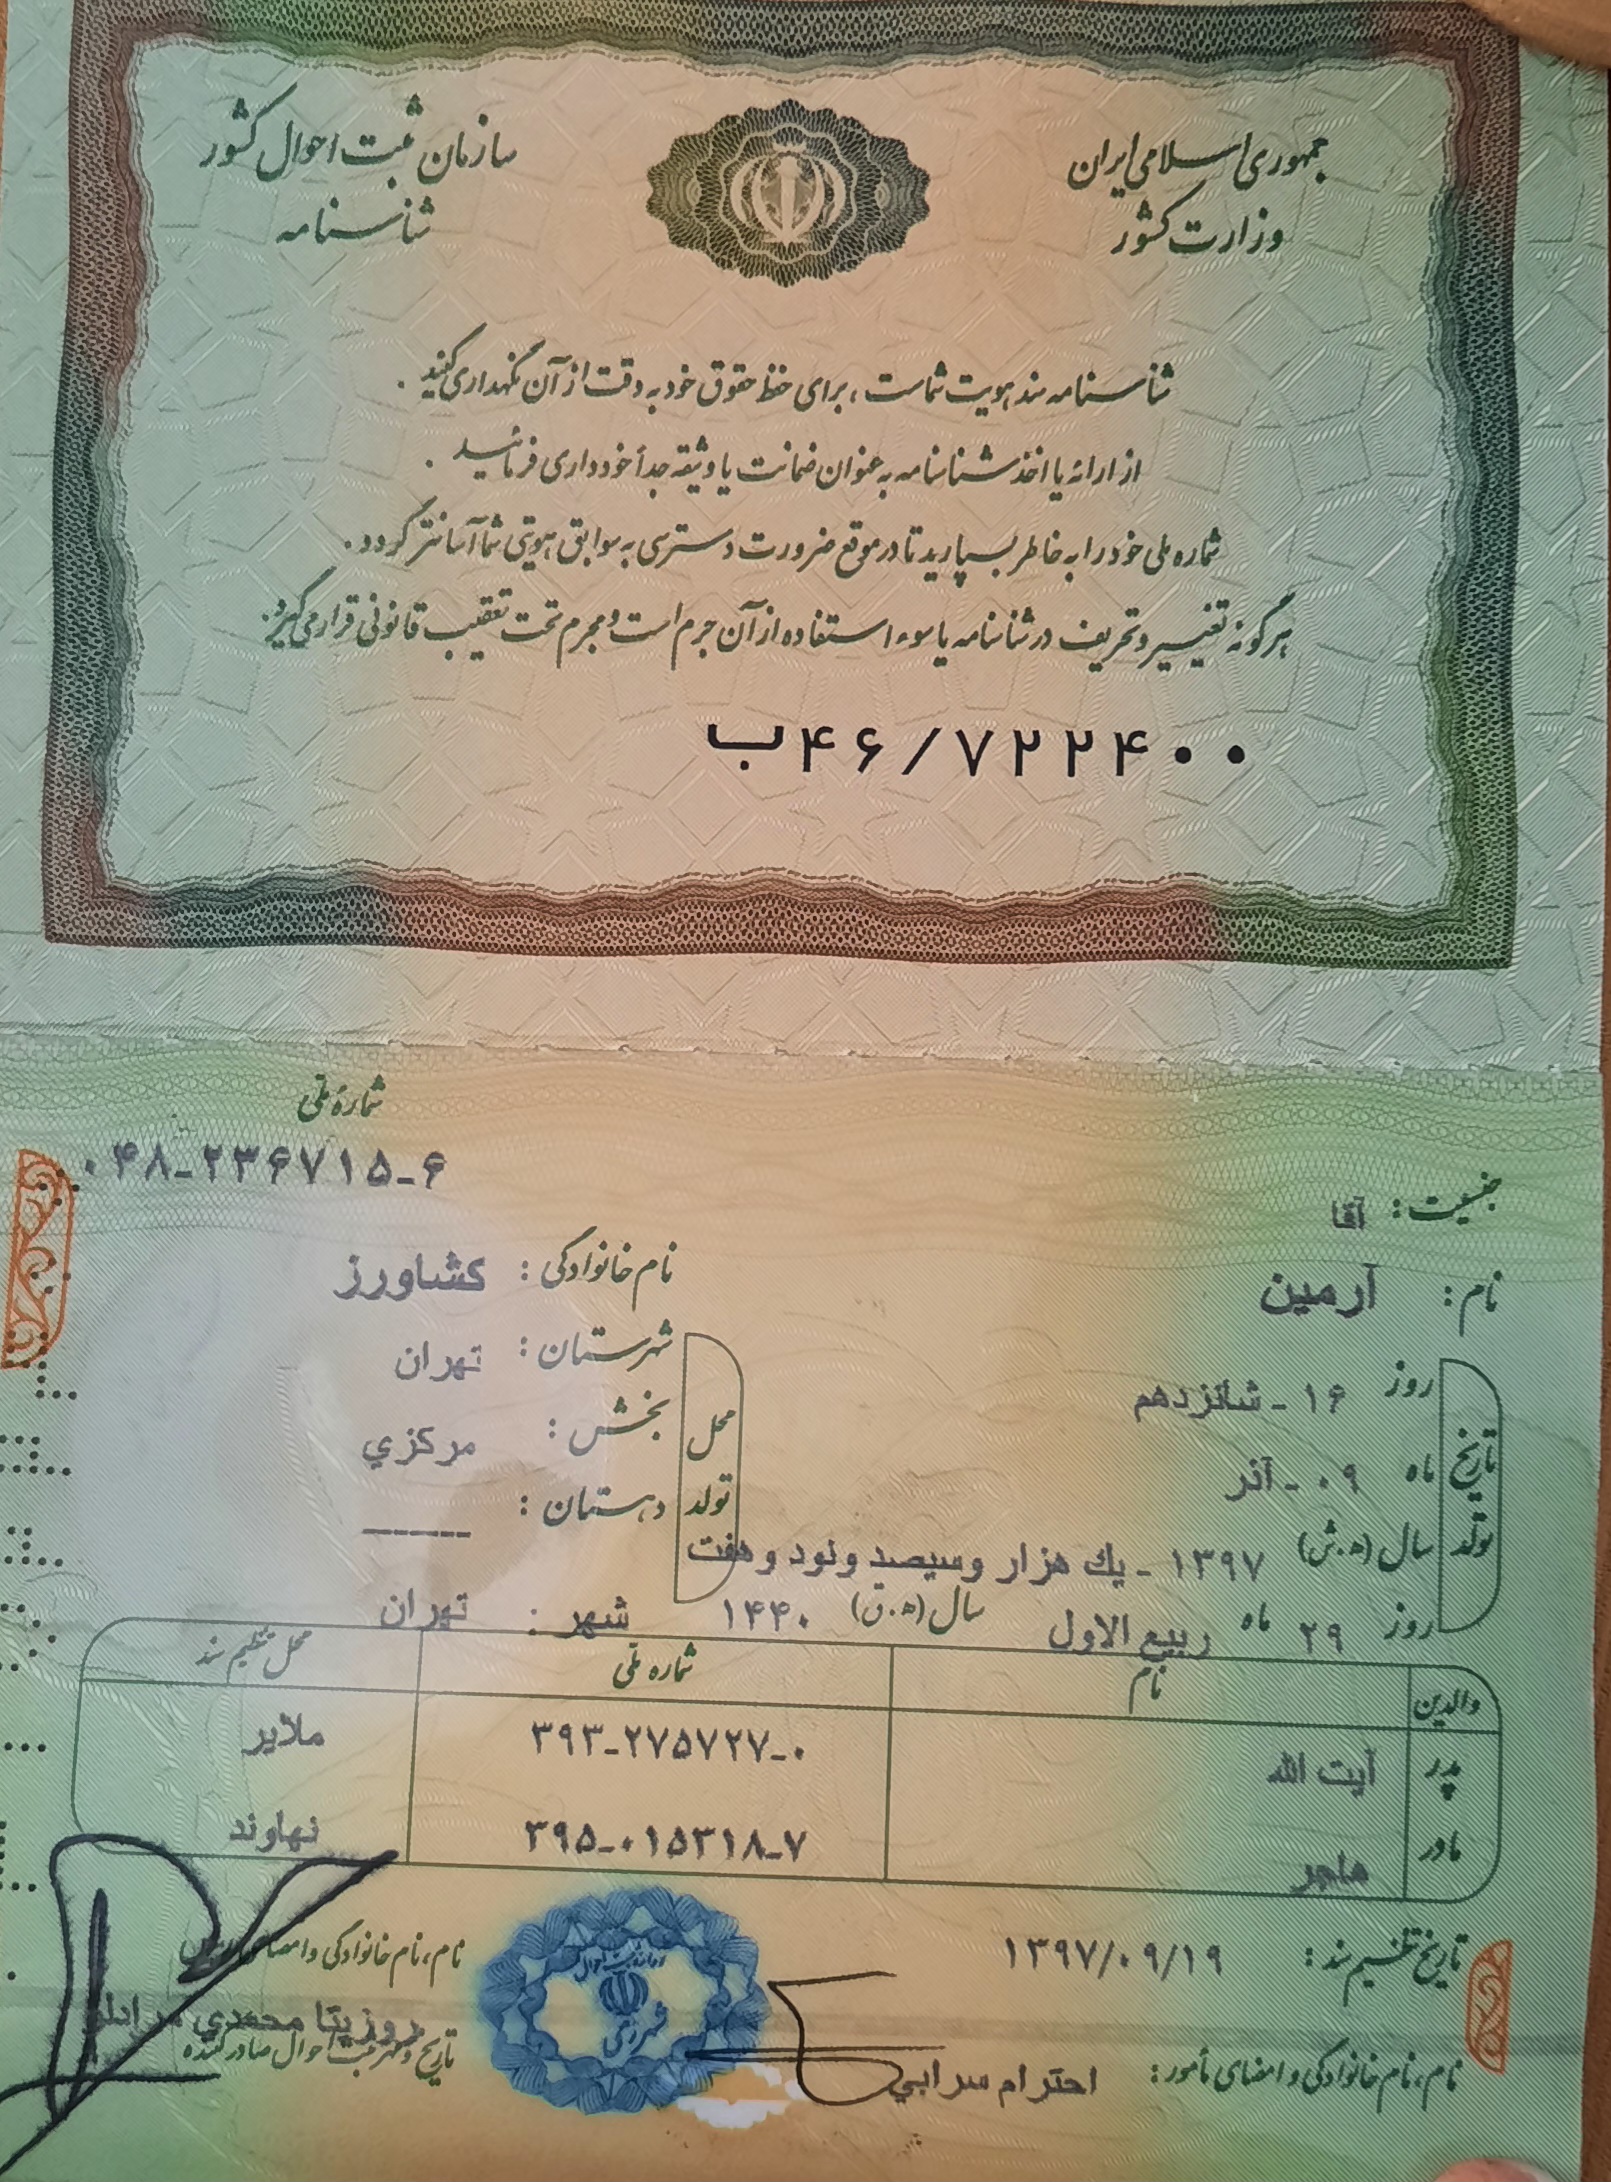 جمهوری اسلامی ایران
وزارت کشور
سازمان ثبت احوال کشور
شناسنامه
شناسنامه سند هویت شماست ، برای حفظ حقوق خود به دقت از آن نگهداری کنید .
از ارائه یا اخذ شناسنامه به عنوان ضمانت یا وثیقه جداً خودداری فرمائید .
شماره ملی خود را به خاطر بسپارید تا در موقع ضرورت دسترسی به سوابق هویتی شما آسانتر گردد .
هرگونه تغییر و تحریف در شناسنامه یا سوء استفاده از آن جرم است و مجرم تحت تعقیب قانونی قرار می گیرد .
ب۴۶/۷۲۲۴۰۰
شماره ملی
۰۴۸-۲۳۶۷۱۵-۶
جنسیت : آقا
نام : آرمین
نام خانوادگی : کشاورز
تاریخ تولد
روز ۱۶ - شانزدهم
ماه ۰۹ - آذر
سال (ه.ش) ۱۳۹۷ - یك هزار وسیصد ونود وهفت
روز ۲۹ ماه ربیع الاول سال (ه.ق) ۱۴۴۰
محل تولد
شهرستان : تهران
بخش : مرکزي
دهستان : -----
شهر : تهران
والدین نام شماره ملی محل تنظیم سند
پدر آیت الله ۳۹۳-۲۷۵۷۲۷-۰ ملایر
مادر هاجر ۳۹۵-۰۱۵۳۱۸-۷ نهاوند
تاریخ تنظیم سند : ۱۳۹۷/۰۹/۱۹
نام، نام خانوادگی و امضای مأمور : احترام سرابي
نام، نام خانوادگی و امضای
روزیتا محمدي
تاریخ و مهر ثبت احوال صادر کننده